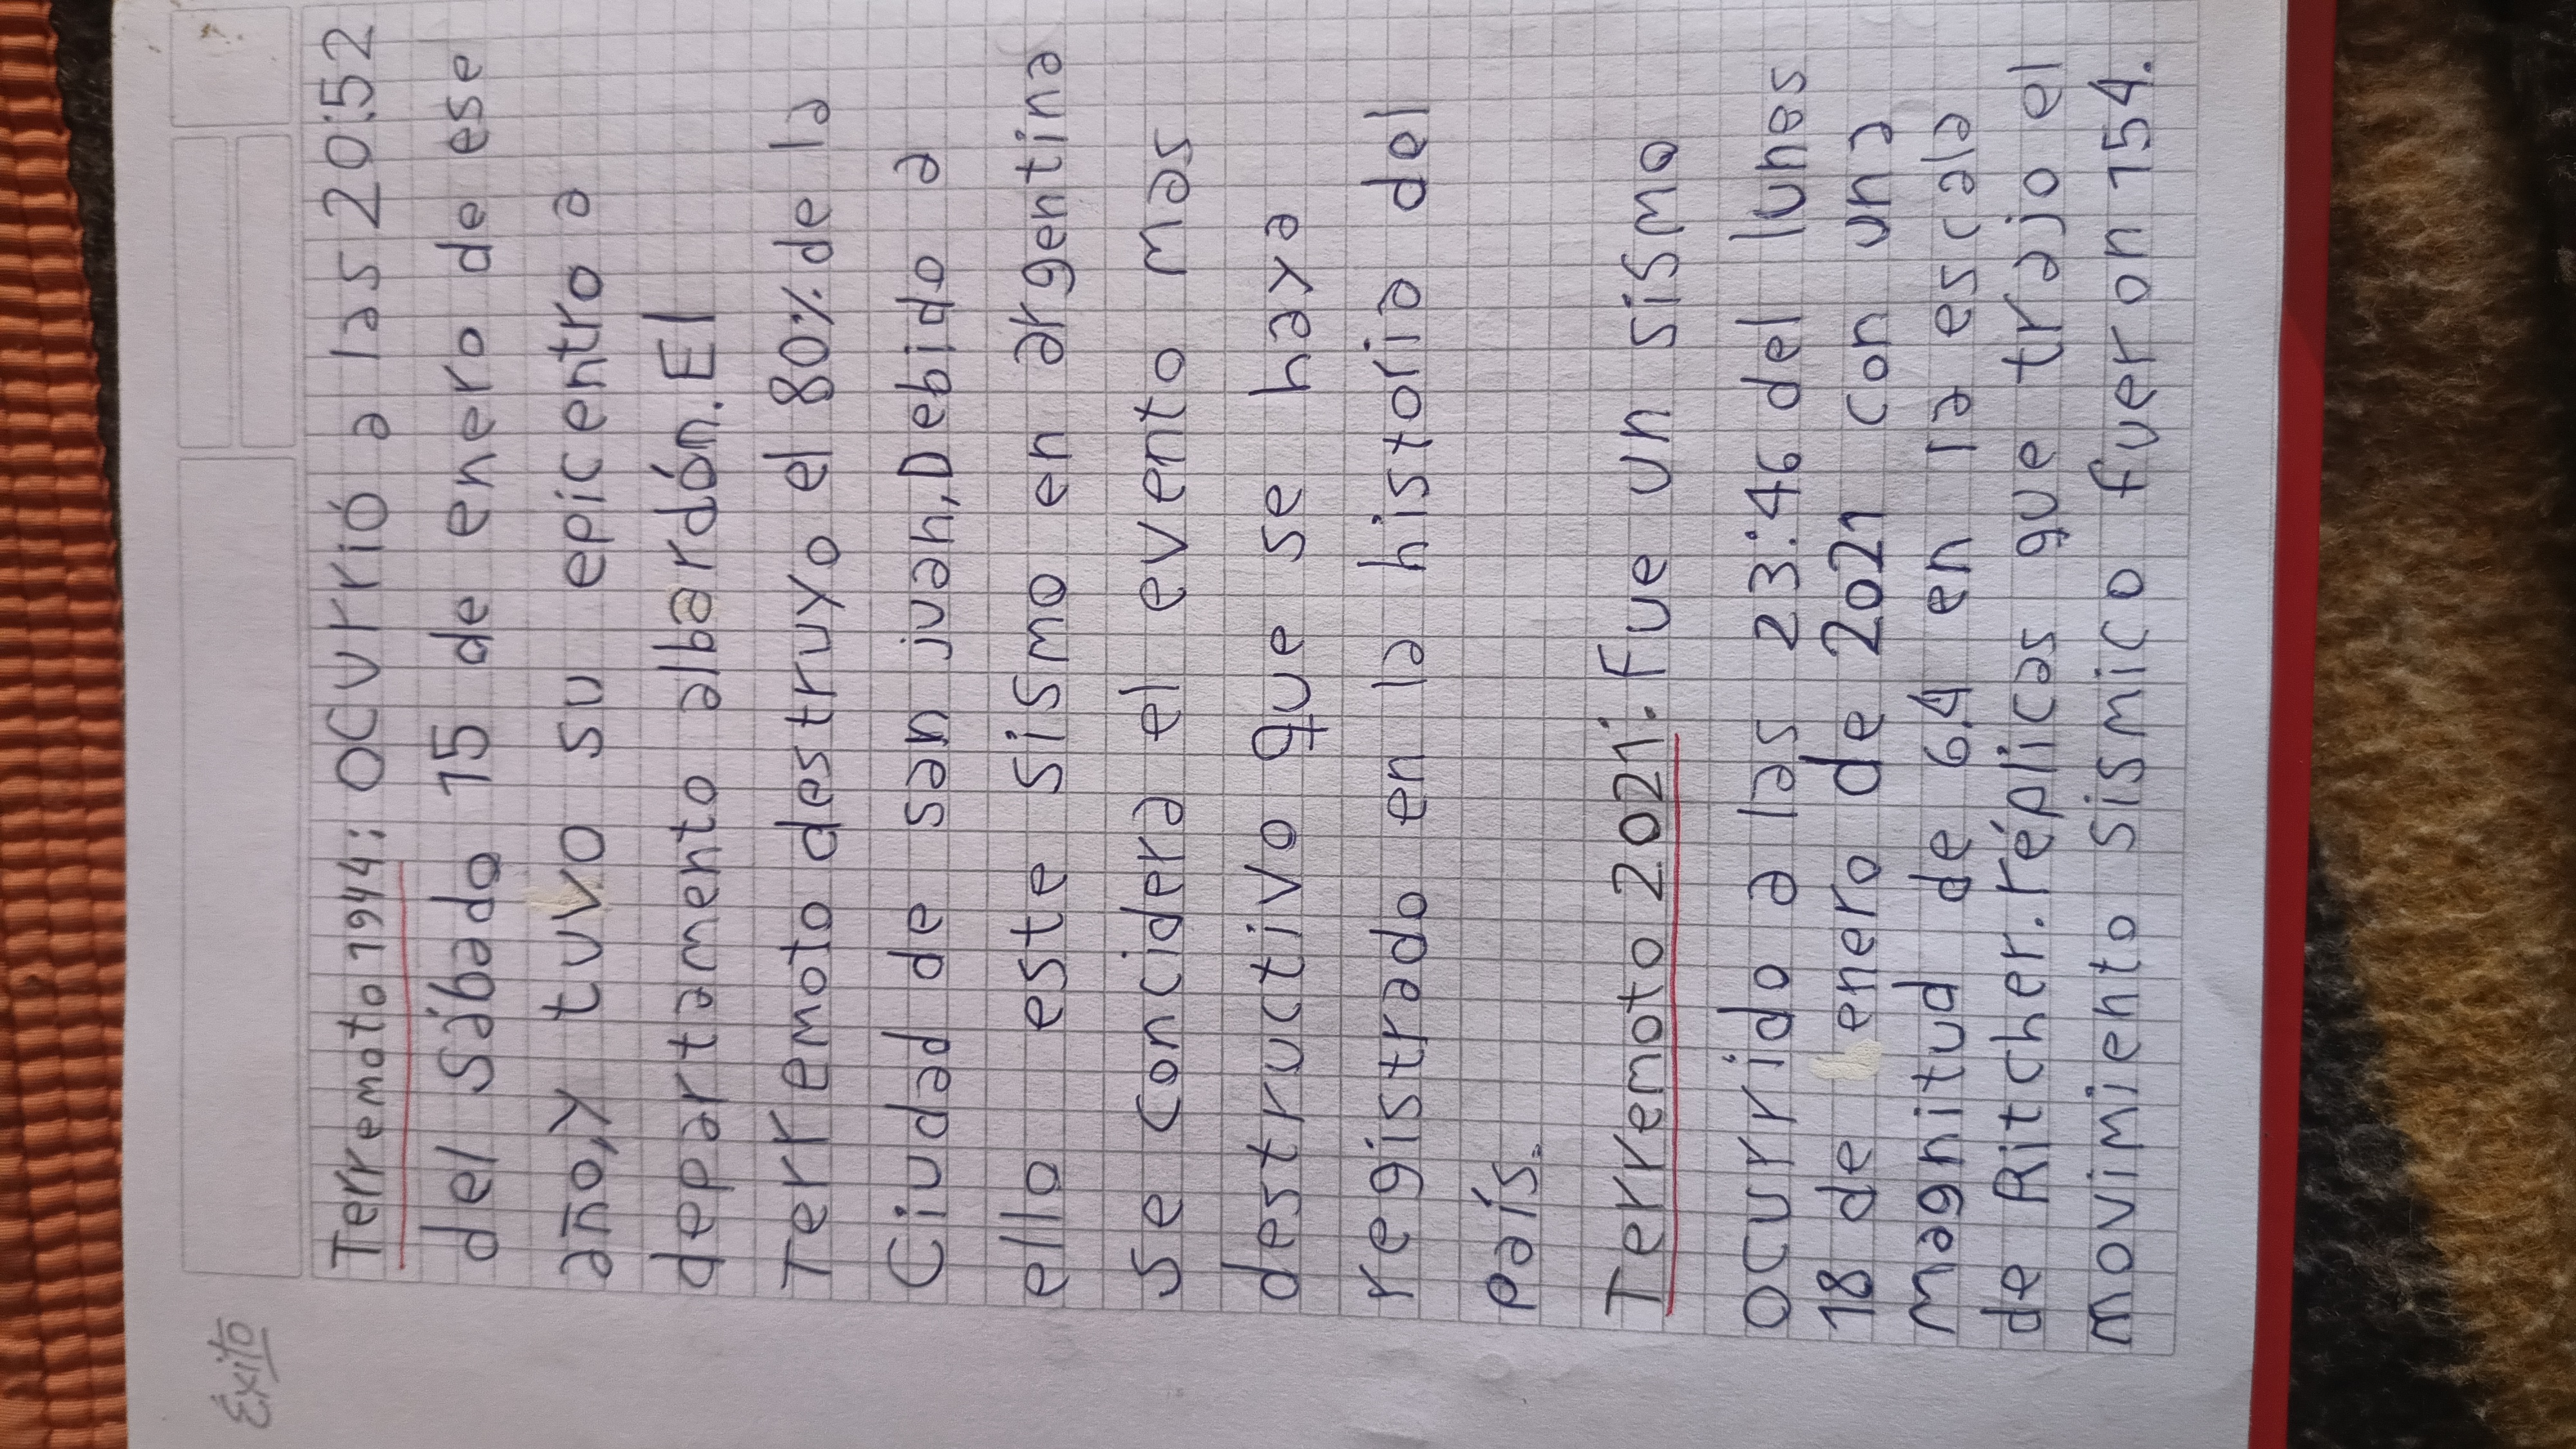 Éxito
Terremoto 1944: Ocurrió a las 20:52
del Sábado 15 de enero de ese
año, y tuvo su epicentro a
departamento albardón. El
Terremoto destruyo el 80% de la
Ciudad de san juan, Debido a
ello este sismo en argentina
se concidera el evento mas
destructivo que se haya
registrado en la historia del
país.
Terremoto 2021: Fue un sismo
ocurrido a las 23:46 del lunes
18 de enero de 2021 con una
magnitud de 6.4 en la escala
de Ritcher. réplicas que trajo el
movimiento sismico fueron 154.